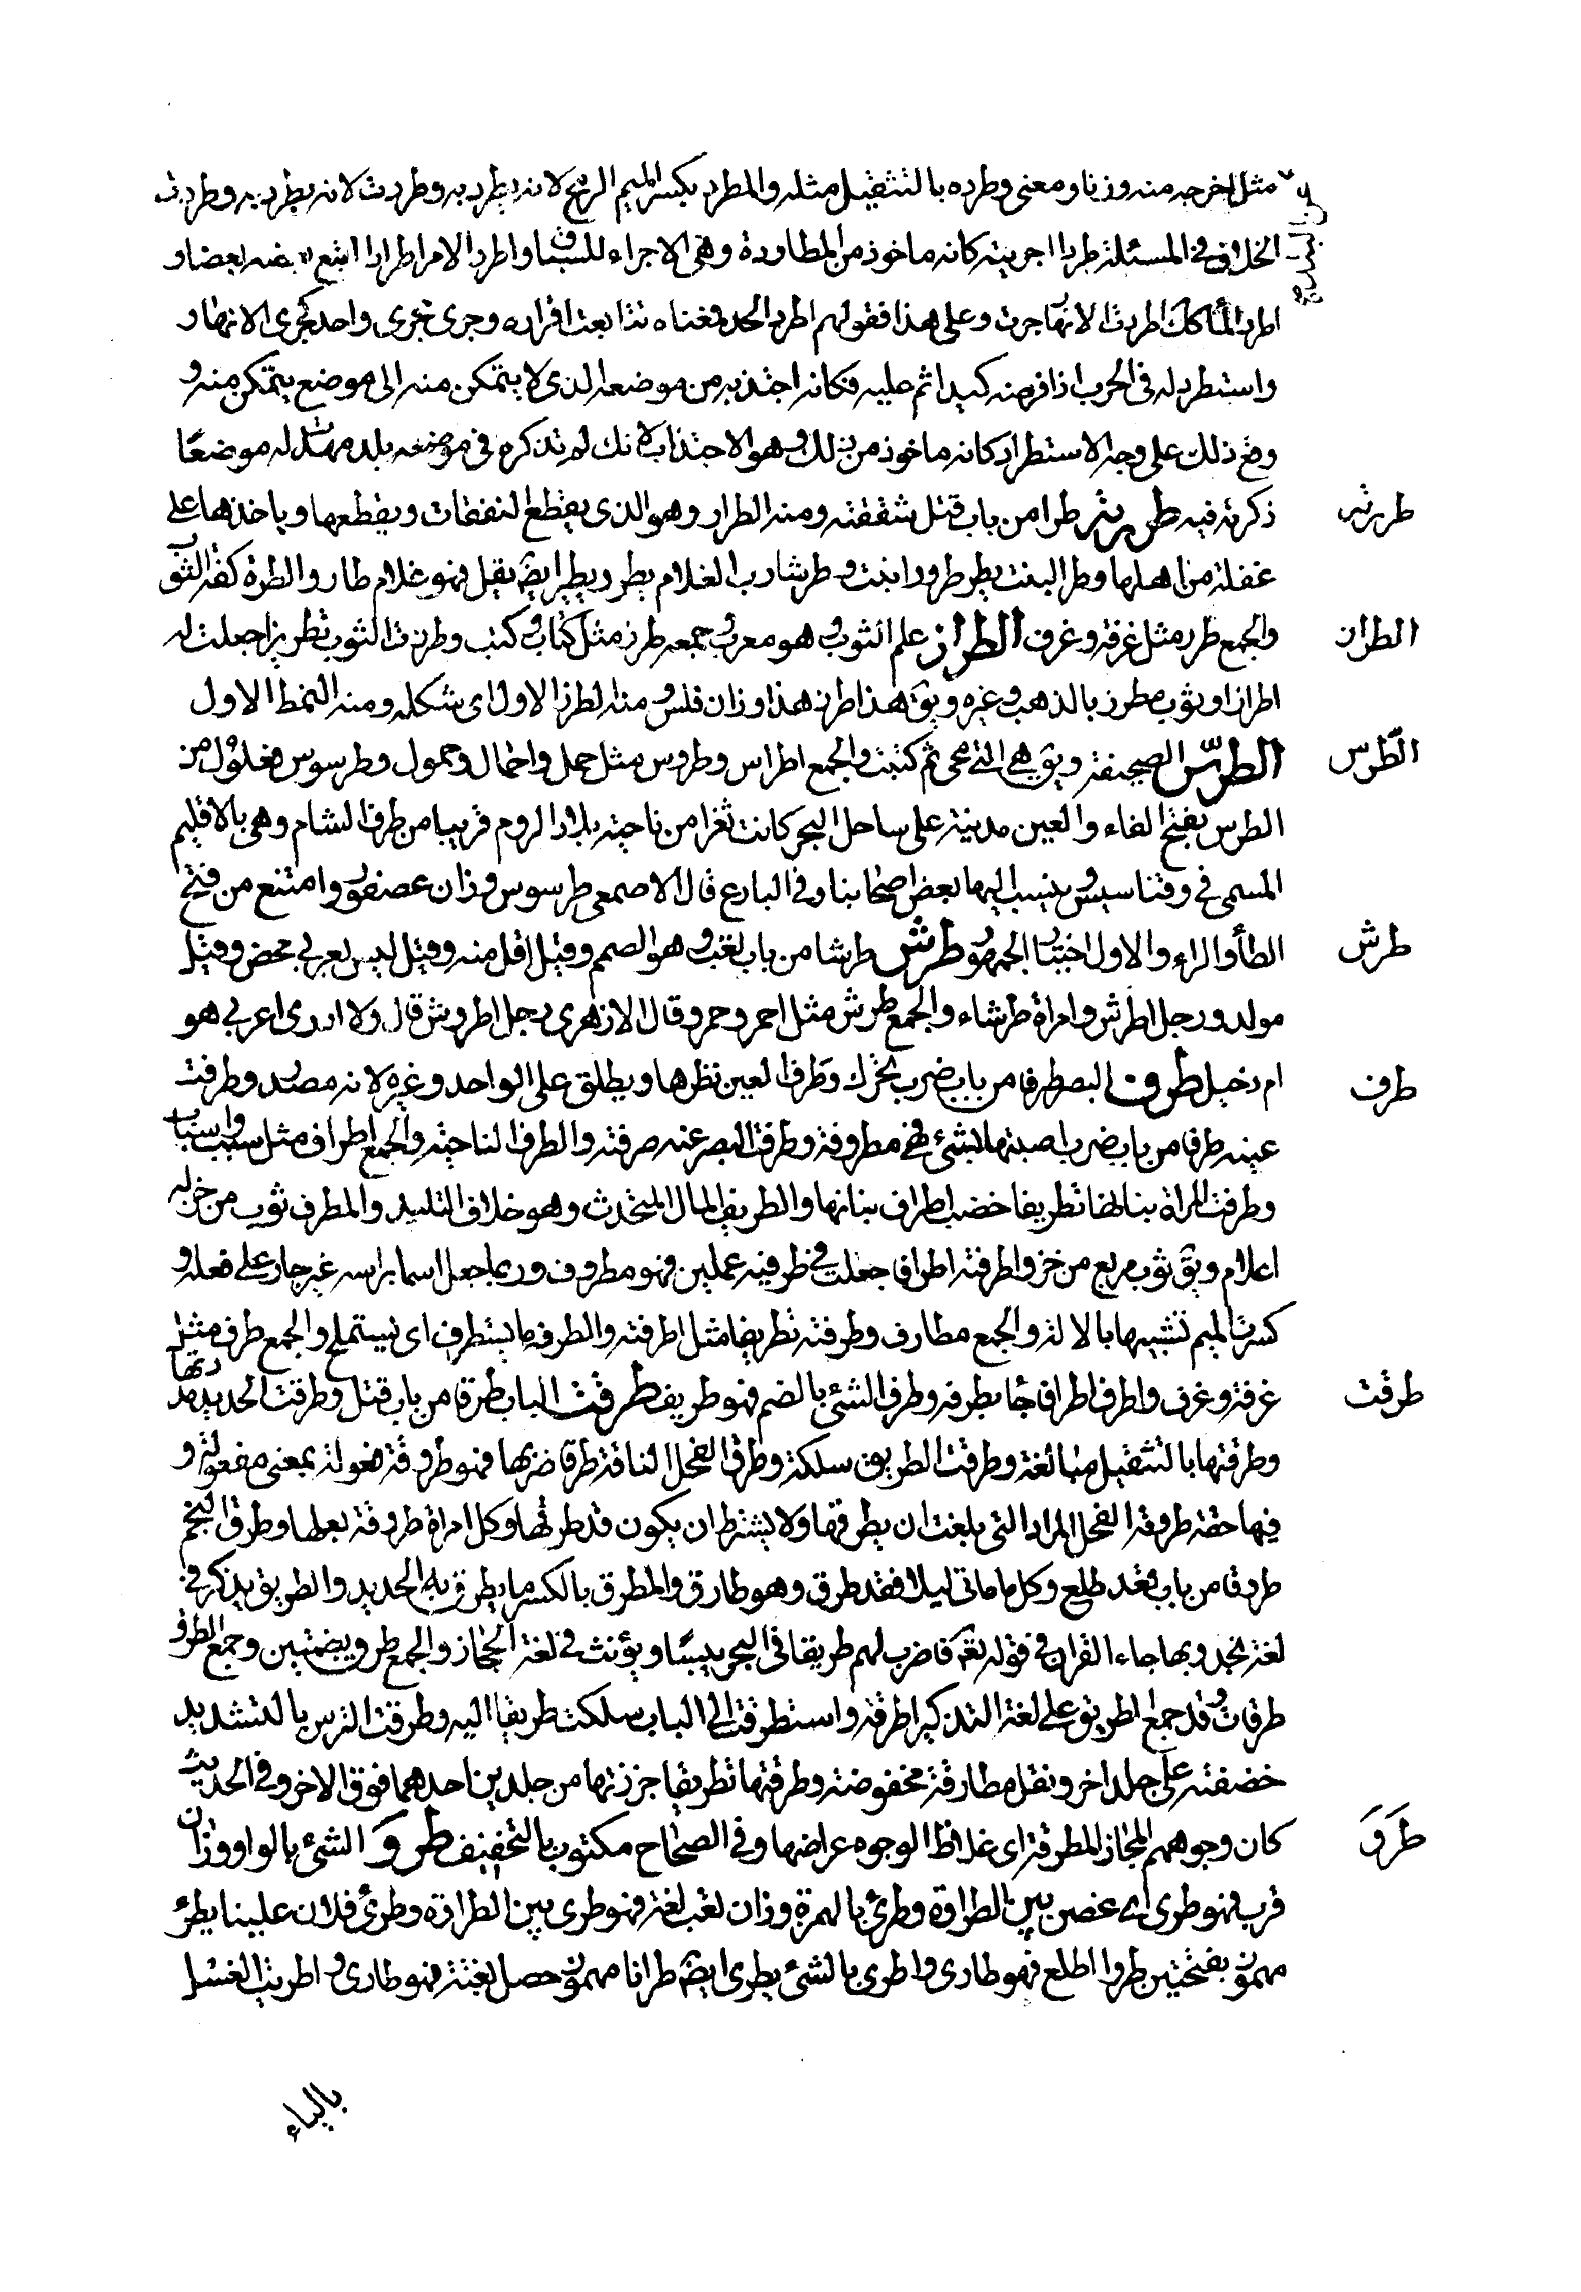 مثل اخرجه منه وزنا ومعنى وطرده بالتثقيل مثله والمطرد بكسر الميم الرمح لانه يطرد به وطردت لانه يطرد به وطردت
الخلاف فى المسئلة طردا اجريته كانه ماخوذ من المطاردة وهى الاجراء للسباق واطرد الامر اطرادا اتبع بعضه بعضا و
اطرد الماء كك اطردت الانهار جرت وعلى هذا فقولهم اطرد الحد معناه تتابعت افراده وجرى مجرى واحد كجرى الانهار
واستطرد له فى الحرب اذا فر منه كيدا ثم عليه فكانه اجتذبه من موضعه الذى لا يتمكن منه الى موضع يتمكن منه و
وقع ذلك على وجه الاستطراد كانه ماخوذ من ذلك وهو الاجتذاب لانك لم تذكره فى موضعه بل مهدت له موضعًا
ذكرته فيه طررته طرا من باب قتل شققته ومنه الطرار وهو الذى يقطع النفقات ويقطعها وياخذها على
غفلة من اهلها وطر النبت يطر طرورا نبت وطر شارب الغلام يطر ويطر ايضا يقل فهو غلام طار والطرة كفة الثوب
والجمع طرر مثل غرفة وغرف الطراز علم الثوب وهو معرب جمعه طرز مثل كتاب وكتب وطرزت الثوب تطريزا جعلت له
اطرازا وثوب مطرز بالذهب وغيره ويق هذا طرز هذا وزان فلس ومنه الطرز الاول اى شكله ومنه النمط الاول
الطرس الصحيفة ويق هى التى محى ثم كتبت والجمع اطراس وطروس مثل حمل واحمال وحمول وطرسوس فعلول من
الطرس بفتح الفاء والعين مدينة على ساحل البحر كانت ثغرا من ناحية بلاد الروم قريبا من طرف الشام وهى بالاقليم
المسمى فى وقتنا سيس وينسب اليها بعض اصحابنا وفى البارع قال الاصمعى طرسوس وزان عصفور وامتنع من فتح
الطأ والراء والاول اختيار الجمهور طرش طرشا من باب تعب وهو الصمم وقيل اقل منه وقيل ليس بعربى محض وقيل
مولد ورجل اطرش وامراة طرشاء والجمع طرش مثل احمر وحمر وقال الازهرى رجل اطروش قال ولا ادرى اعربى هو
ام دخيل طرف البصر طرفا من باب ضرب تحرك وطرف العين نظرها ويطلق على الواحد وغيره لانه مصدر وطرفت
عينه طرفا من باب ضرب اصبتها بشئ فهى مطروفة وطرفت البصر عنه صرفته والطرف الناحية والجمع اطراف مثل سبب واسباب
وطرفت المراة بنانها تطريفا خضبت اطراف بنانها والطريف المال المتحدث وهو خلاف التليد والمطرف ثوب من خز له
اعلام ويق ثوب مربع من خز واطرفته اطرافا جعلت فى طرفيه عملين فهو مطروف وربما جعل اسما براسه غير جار على فعله و
كسرت الميم تشبيها بالالة والجمع مطارف وطرفته تطريفا مثل اطرفته والطرفة ما يستطرف اى يستملح والجمع طرف مثل
غرفة وغرف واطرف اطرافا جا بطرفة وطرف الشئ بالضم فهو طريف طرقت الباب طرقا من باب قتل وطرقت الحديد مددتها
وطرقتها بالتثقيل مبالغة وطرقت الطريق سلكته وطرق الفحل الناقة طرقا ضربها فهو طروقة فعولة بمعنى مفعولة و
فيها حقة طروقة الفحل المراد التى بلغت ان يطرقها ولا يشترط ان يكون قد طرقها وكل امراة طروقة بعلها وطرق النجم
طروقا من باب قعد طلع وكل ما ماتى ليلا فقد طرق وهو طارق والمطرق بالكسر ما يطرق به الحديد والطريق يذكر فى
لغة نجد وبها جاء القران فى قوله تع فاضرب لهم طريقا فى البحر يبسًا ويؤنث فى لغة الحجاز والجمع طرق بضمتين وجمع الطرق
طرقات وقد جمع الطريق على لغة التذكير اطرقة واستطرقت الى الباب سلكت طريقا اليه وطرقت الترس بالتشديد
خصفته على جلد اخر ونعل مطارقة مخفوضة وطرقتها تطريقا جززتها من جلدين احدهما فوق الاخر وفى الحديث
كان وجوههم المجاز المطرقة اى غلاظ الوجوه عراضها وفى الصحاح مكتوب بالتخفيف طرو الشئ بالواو وزان
قرب فهو طرى اے غصن بين الطراوة وطرئ بالهمزة وزان لغب لغة فهو طرى بين الطراءة وطرئ فلان علينا يطرئ
مهموز بفتحتين طروا اطلع فهو طارى واطرى بالشئ يطرى ايضا طرانا مهموز حصل بغتة فهو طارى واطريت العسل
طررته
الطراز
الطّرس
طرش
طرف
طرقت
طَرَوَ
بالياء